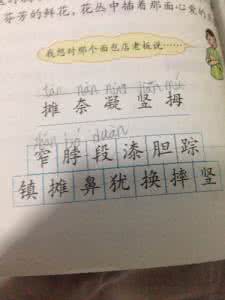 芬芳的鲜花，花丛中插着那面心爱的
我想对那个面包店老板说……
tān nàn níng
摊 奈 凝 竖 拇
duàn
窄 脖 段 漆 胆 踪
镇 摊 鼻 犹 换 摔 竖